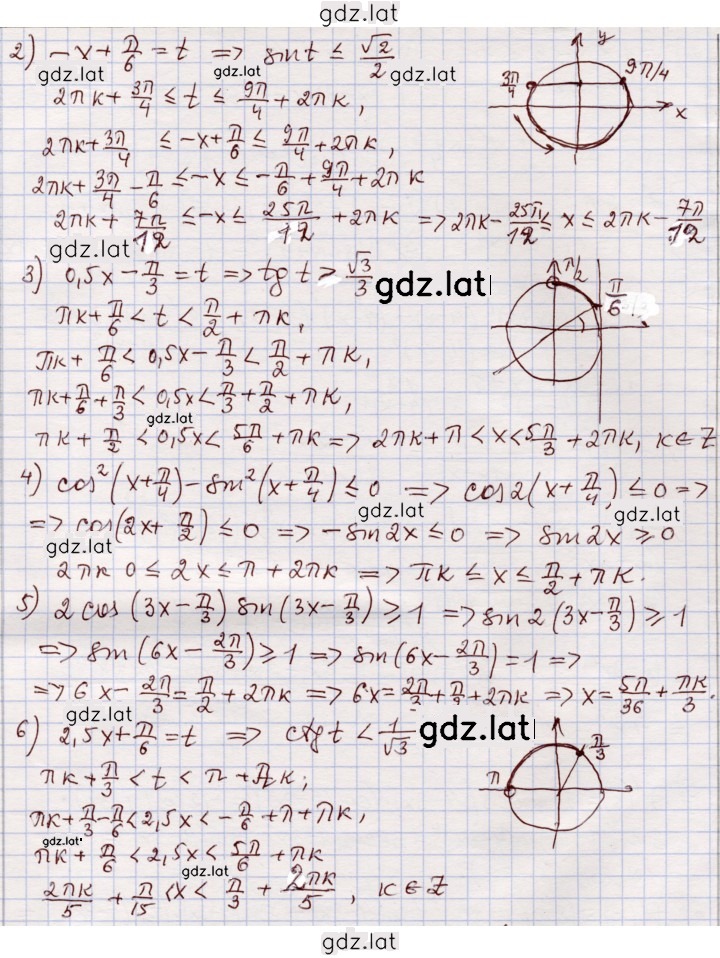 gdz.lat
2) -x + π/6 = t => sin t ≤ √2/2
gdz.lat
2πk + 3π/4 ≤ t ≤ 9π/4 + 2πk,
y
3π/4
9π/4
x
2πk + 3π/4 ≤ -x + π/6 ≤ 9π/4 + 2πk,
2πk + 3π/4 - π/6 ≤ -x ≤ -π/6 + 9π/4 + 2πk
2πk + 7π/12 ≤ -x ≤ 25π/12 + 2πk => 2πk - 25π/12 ≤ x ≤ 2πk - 7π/12
gdz.lat
3) 0,5x - π/3 = t => tg t > √3/3
gdz.lat
π/2
π/6
πk + π/6 < t < π/2 + πk,
πk + π/6 < 0,5x - π/3 < π/2 + πk,
πk + π/6 + π/3 < 0,5x < π/3 + π/2 + πk,
gdz.lat
πk + π/2 < 0,5x < 5π/6 + πk => 2πk + π < x < 5π/3 + 2πk, k∈Z
4) cos²(x + π/4) - sin²(x + π/4) ≤ 0 => cos2(x + π/4) ≤ 0 =>
gdz.lat
gdz.lat
=> cos(2x + π/2) ≤ 0 => -sin2x ≤ 0 => sin2x ≥ 0
gdz.lat
2πk 0 ≤ 2x ≤ π + 2πk => πk ≤ x ≤ π/2 + πk.
5) 2cos(3x - π/3) sin(3x - π/3) ≥ 1 => sin2(3x - π/3) ≥ 1
=> sin(6x - 2π/3) ≥ 1 => sin(6x - 2π/3) = 1 =>
=> 6x - 2π/3 = π/2 + 2πk => 6x = 2π/3 + π/2 + 2πk => x = 5π/36 + πk/3.
gdz.lat
6) 2,5x + π/6 = t => ctg t < 1/√3
gdz.lat
π
π/3
πk + π/3 < t < π + πk;
πk + π/3 - π/6 < 2,5x < -π/6 + π + πk,
gdz.lat
πk + π/6 < 2,5x < 5π/6 + πk
gdz.lat
2πk/5 + π/15 < x < π/3 + 2πk/5, k∈Z
gdz.lat